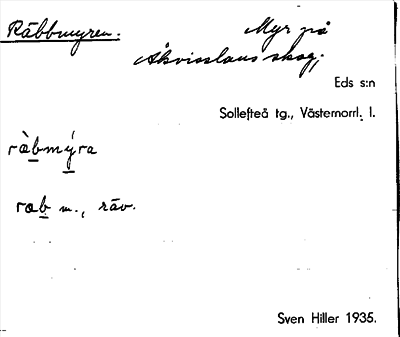 Räbbmyren. Myr på
Åkvisslans skog;
Eds s:n
Sollefteå tg., Västernorrl. l.
ràbmýra
rab m., räv.
Sven Hiller 1935.